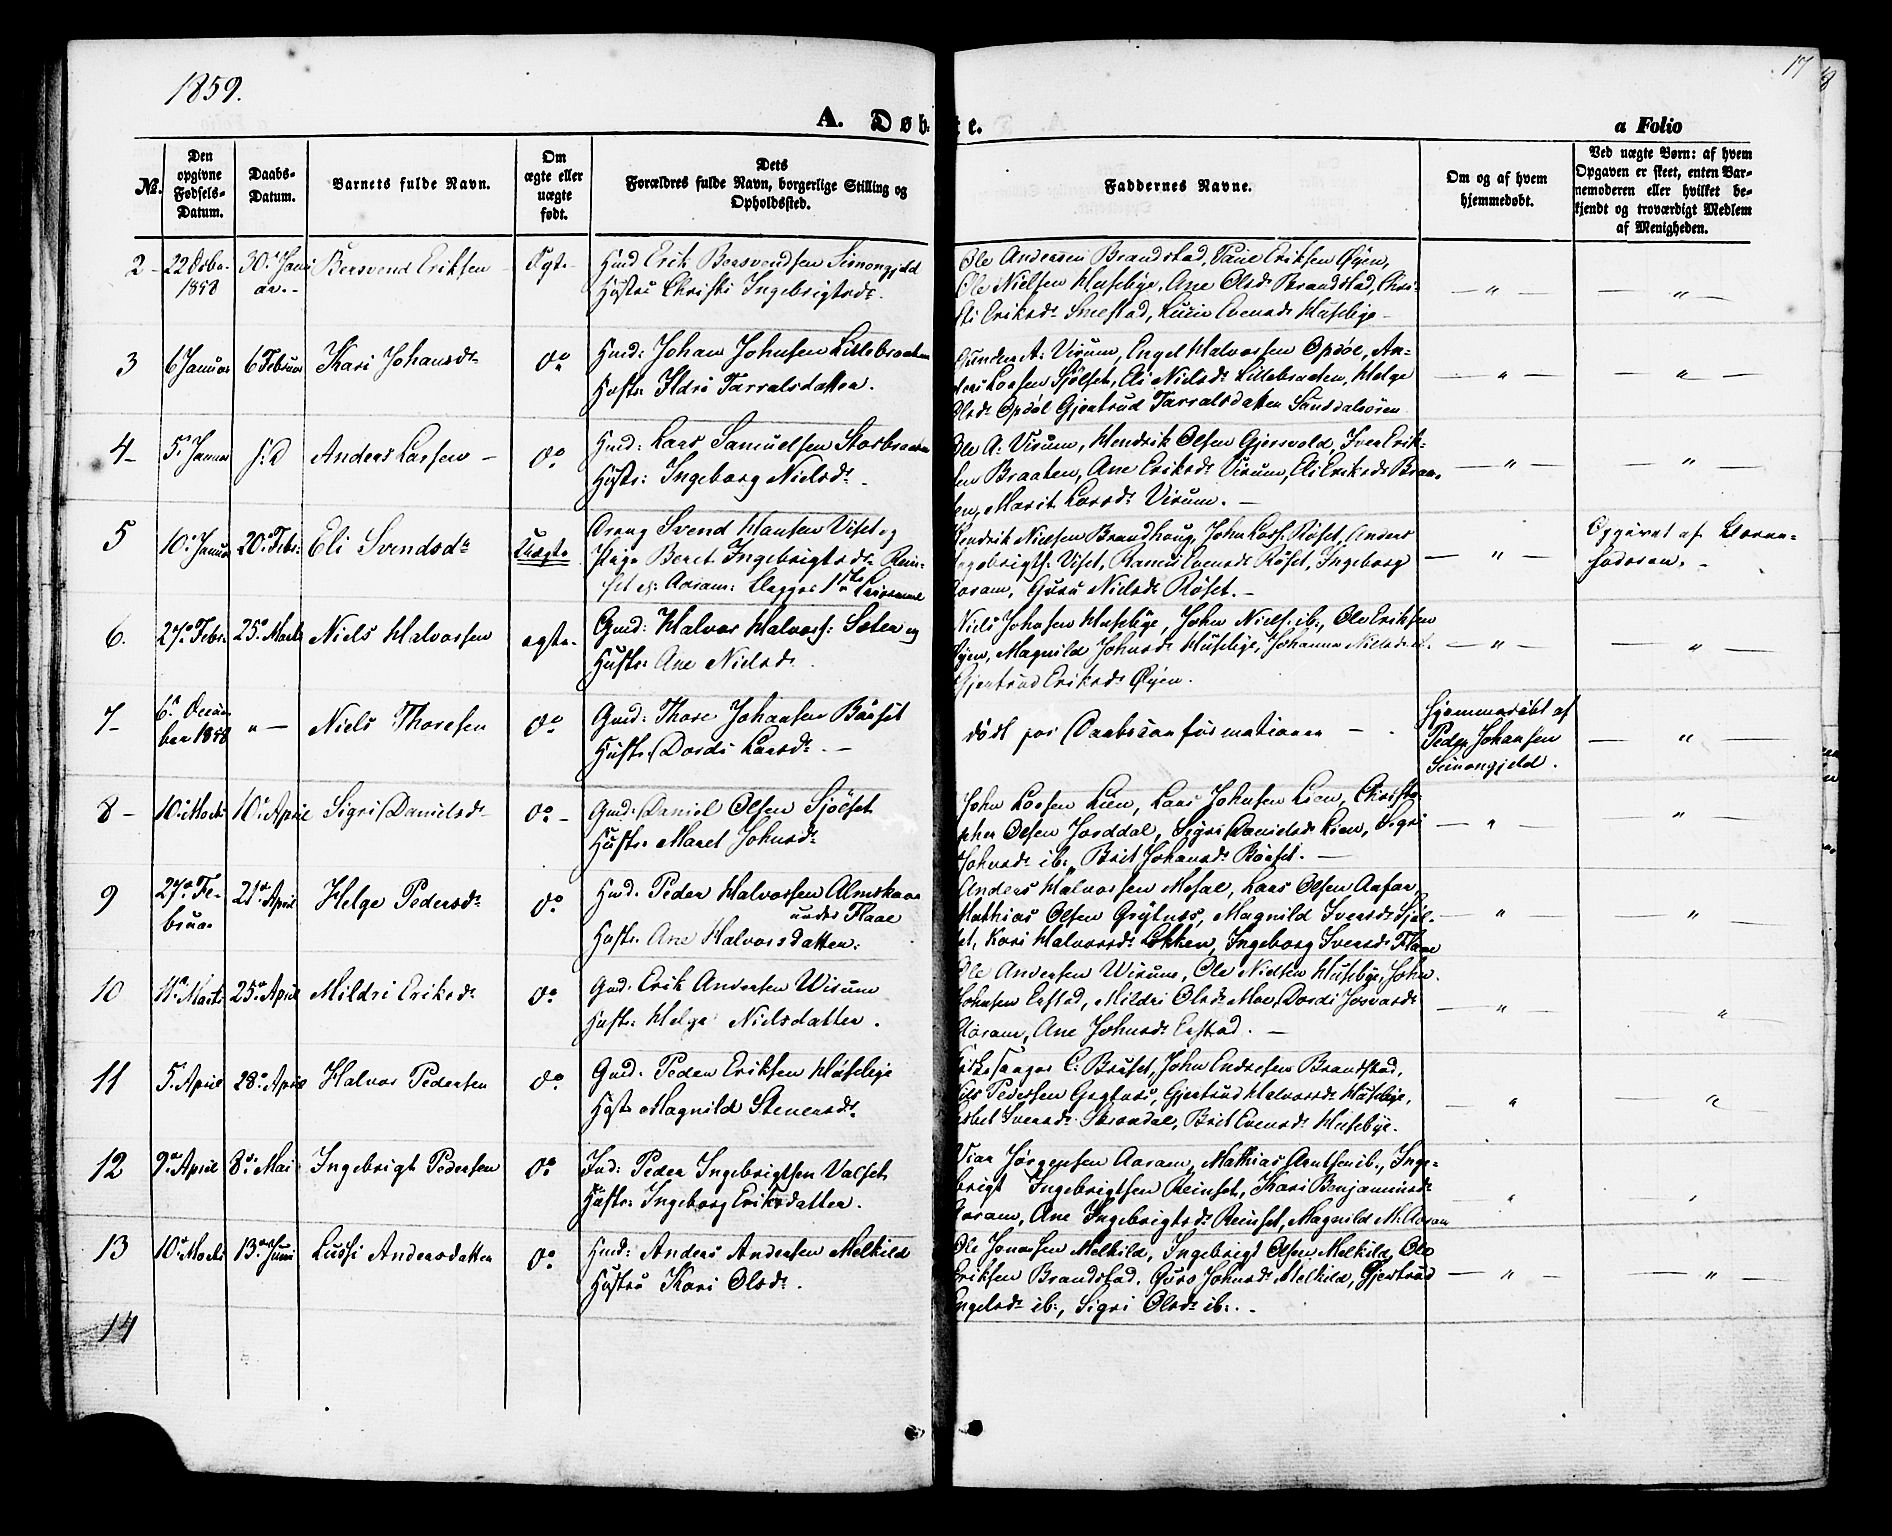 1859.
17
18
A. Døbte.
a Folio
No.
Den
opgivne
Fødsels-
Datum.
Daabs-
Datum.
Barnets fulde Navn.
Om
ægte eller
uægte
født.
Dets
Forældres fulde Navn, borgerlige Stilling og
Opholdssted.
Faddernes Navne.
Om og af hvem
hjemmedøbt.
Ved uægte Børn: af hvem
Opgaven er skeet, enten Bar-
nemoderen eller hvilket be-
kjendt og troværdigt Medlem
af Menigheden.
2 -
1858
30. Janu
ar. -
Bersvend Eriksen
Ægte
Huusmd Erik Bersvendsen Simongjeld
Hustru Christi Ingebrigtsdr.
Ole Andersen Brandstad, Eriksen Øyen,
Ole Nielsen Husebye, Ane Olsdr Brandstad, Chri-
sti Eriksdr Smestad, Evensdr Husebye -
— " —
— " —
3
6 Januar
6 Februar
Kari Johansdr
Do
Hmd: Johan Johnsen Lillebraaten
Hustr: Ildri Tarralsdatter.
Gunder A: Virum, Engel Halvorsen Opdøl, An-
ders Larsen Sjølset, Eli Nielsdr Lillebraaten, Helge
Olsdr Opdøl Gjertrud Tarralsdatter
— " —
— " —
4 -
5. Januar
s: D
Anders Larsen -
Do
Hmd: Lars Samuelsen Storbraaten
Hustr: Ingeborg Nielsdr.
Ole A: Virum, Hendrik Olsen Gjersvold, Iver Erik-
sen Braaten, Ane Eriksdr Virum, Eli Eriksdr Braa-
ten, Marit Larsdr Virum. -
— " —
— " —
5
10. Januar
20. Febr:
Eli Svendsdr
Uægte
Dreng Svend Hansen Viset og
Pige Beret Ingebrigtsdr Rein-
set
Hendrik Nielsen Brandhaug, John Larss. Røset, Anders
Ingebrigts. Viset, Evensdr Røset, Ingeborg
Aaram, Guru Nielsdr Røset. -
— " —
Opgivet af Barne-
faderen. -
6.
27. Febr.
25. Marts
Niels Halvorsen
ægte
Gmd: Halvor Halvors: Seter og
Hustr: Ane Nielsdr.
Niels Johnsen Husebye, John Niels: ib:, Ole Eriksen
Øyen, Magnild Johnsdr Husebye, Johanna Nielsdr
Gjertrud Eriksdr Øyen.
— " —
— " —
7 -
6. Decem-
ber 1858
" —
Niels Thoresen
Do
Gmd: Thore Johansen Bøeset
Hustr: Dordi Larsdr. -
død før Daabsconfirmationen -
Hjemmedøbt af
Peder Johansen
Simongjeld.
— " —
8 -
10. Marts
10. April
Sigri Danielsdr
Do -
Gmd: Daniel Olsen Sjølset
Hustr: Maret Johnsdr
John Larsen Lien, Lars Johnsen Lien, Christo-
pher Olsen Jorddal, Sigri Danielsdr Lien, Sigri
Johnsdr ib:, Brit Johansdr Bøeset. -
— " —
— " —
9
27. Fe-
bruar
21. April
Helge Pedersdr
Do
Hmd. Peder Halvorsen Almskaar
under Flaae
Hustr. Ane Halvorsdatter.
Anders Halvorsen Mosal, Lars Olsen
Mathias Olsen Grytnæs, Magnild Iversdr Sjøl-
set, Kari Halvorsdr Løkken, Ingeborg Iversdr Flaae
— " —
— " —
10
11. Marts
25. April
Mildri Eriksdr
Do
Gmd. Erik Andersen Wirum
Hustr: Helge Nielsdatter.
Ole Andersen Wirum, Ole Nielsen Husebye, John
Johnsen Erstad, Mildri Olsdr Moe, Dordi
Aaram, Ane Johnsdr Erstad. -
— " —
"
11
5. April
28. April
Halvor Pedersen
Do
Gmd. Peder Eriksen Husebye
Hustr. Magnild Stenersdr
Kirkesanger C: Bruset, John Endresen Brandstad,
Nils Pedersen Grytnæs, Gjertrud Halvorsdr Husebye,
Iversdr Skrondal, Brit Evensdr Husebye.
— " —
— " —
12
9. April
8. Mai
Ingebrigt Pedersen
Do
Ind: Peder Ingebrigtsen Valset
Hustr: Ingeborg Eriksdatter.
Jørgensen Aaram, Mathias Arntsen ib:, Inge-
brigt Ingebrigtsen Reinset, Kari Benjaminsdr
Aaram, Ane Ingebrigtsdr Reinset, Magnild M. Aaram
"
"
13
10. Marts
13. Juni
Lussi Andersdatter
Do
Hmd: Anders Andersen Melkild
Hustru Kari Olsdr.
Ole Jonassen Melkild, Ingebrigt Olsen Melkild, Ole
Eriksen Brandstad. Guro Johnsdr Melkild, Gjertrud
Engelsdr ib:, Sigri Olsdr ib:. -
— " —
— " —
14